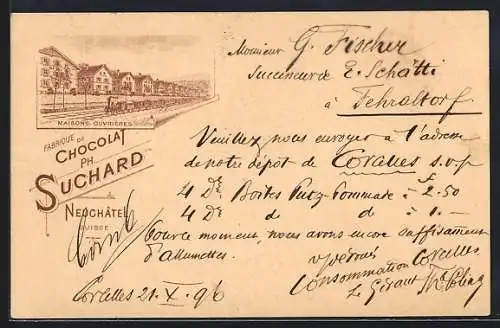 MAISONS OUVRIÈRES
FABRIQUE DE
CHOCOLAT
PH.
SUCHARD
NEUCHÂTEL
SUISSE
Monsieur G. Fischer
Successeur de E. Schätti
à Fehraltorf
Veuillez nous envoyer à l'adresse
de notre dépôt de Corcelles s.v.p
4 Dz Boites Putz-Pommade à 2.50
4 Dz d d à 1.—
Pour ce moment, nous avons encore suffisamment
d'allumettes.
Consommation Corcelles
Le Gérant
Corcelles 21. X. 96